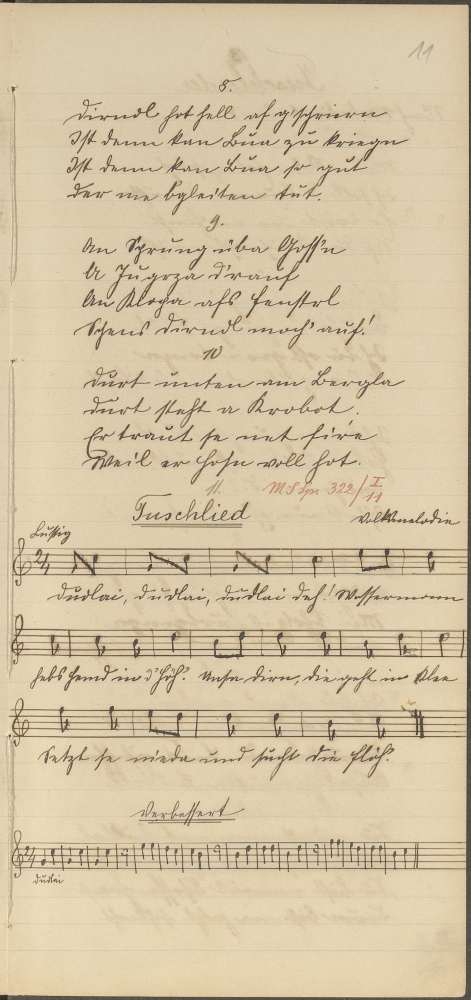 11
8.
Dirndl hot hell af g'schrieen
Ist denn kan Bua zu kriegn
Ist denn kan Bua so gut
Der me bgleiten tut.
9.
An Sprung üba Goss'n
A Jugeza drauf
An Klopfa afs Fenstrl
Schens Dirndl moch' auf!
10
Durt unten am Bergla
Durt steht a Krobot.
Er traut se net fire
Weil er Hosn voll hot.
11. M S Sp. 322/I/11
Tuschlied
Volksmelodie
Lustig
Dudlai, dudlai, dudlai deh! Wossermonn
hebs Hemd in d'Höh'. Unsa Dirn, die geht im Klee
Setzt se nieda und sucht die Flöh'.
Verbessert
dudlai